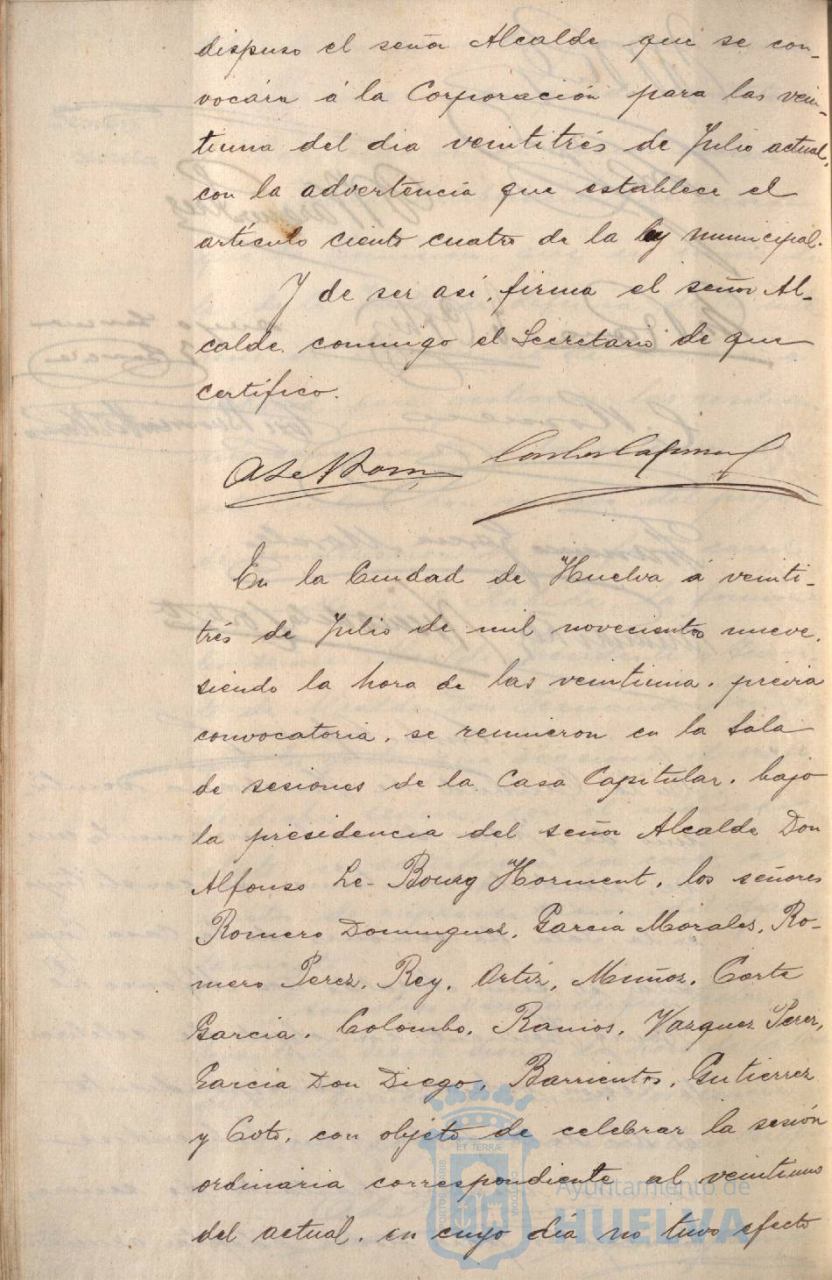 dispuso el señor Alcalde que se con-
vocára á la Corporación para las vein-
tiuna del dia veintitrés de Julio actual,
con la advertencia que establece el
artículo ciento cuatro de la ley municipal.
Y de ser asi, firma el señor Al-
calde conmigo el Secretario de que
certífico.
En la Ciudad de Huelva á veinti-
trés de Julio de mil novecientos nueve,
siendo la hora de las veintiuna, prévia
convocatoria, se reunieron en la Sala
de sesiones de la Casa Capitular, bajo
la presidencia del señor Alcalde Don
Alfonso Le-Bourg Horment, los señores
Romero Dominguez, García Morales, Ro-
mero Perez, Rey, Ortiz, Muñoz, Corte
Garcia, Colombo, Ramos, Vazquez Perez,
Garcia Don Diego, Barrientos, Gutierrez
y Coto, con objeto de celebrar la sesión
ordinaria correspondiente al veintiuno
del actual, en cuyo dia no tuvo efecto
Ayuntamiento de
HUELVA